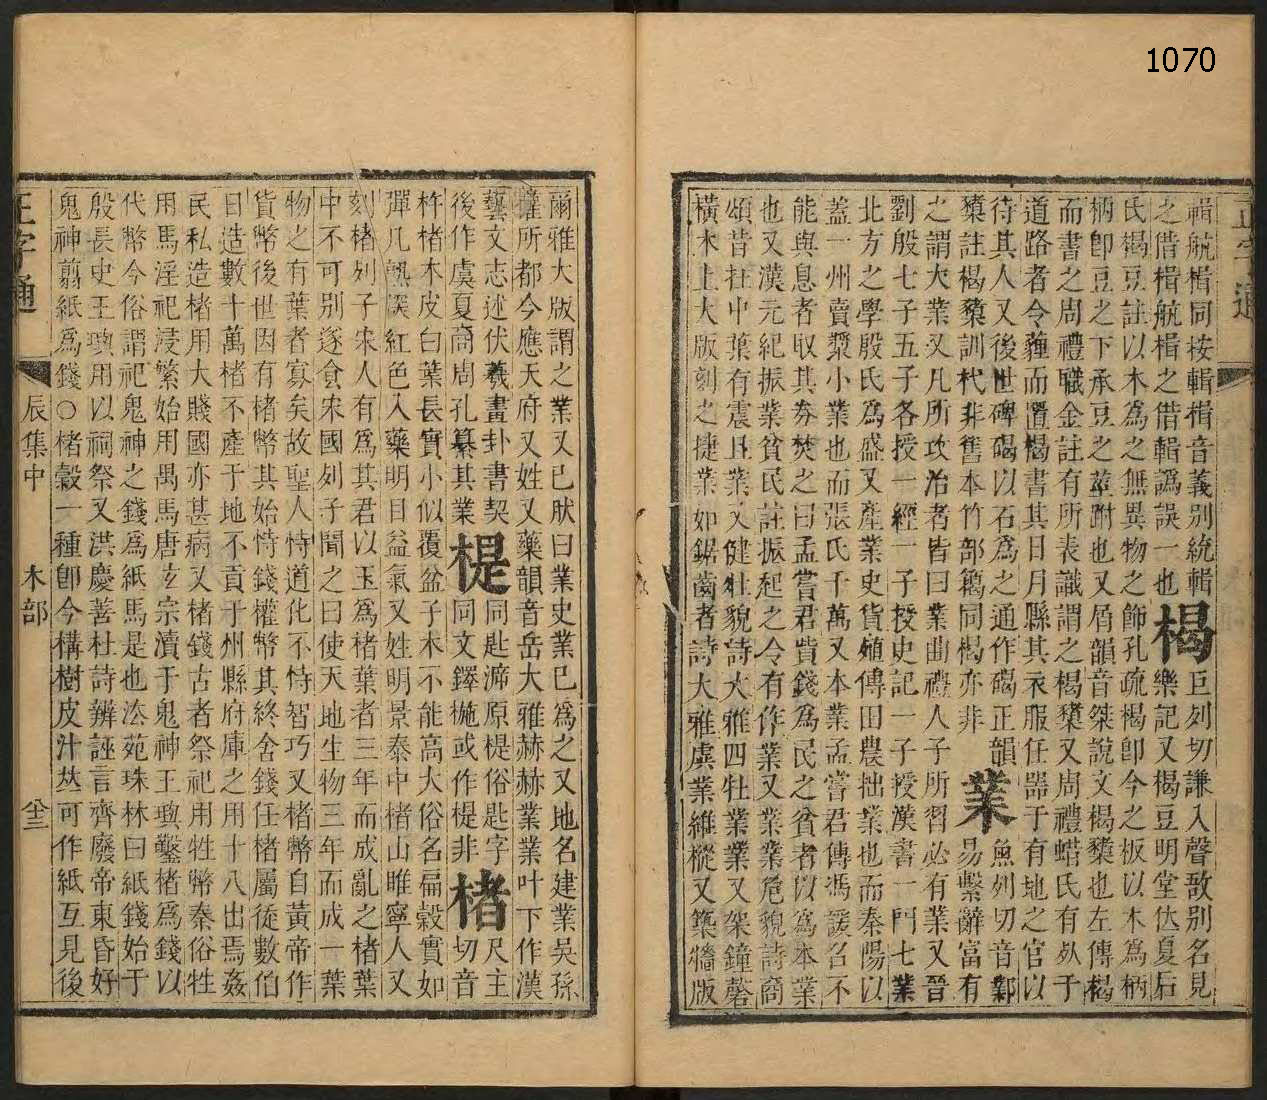 1070
正字通
輯航楫同按輯揖音義別統輯
之借楫航楫之借輯譌誤一也楬巨列切謙入聲敔別名見樂記又楬豆明堂位夏后
氏楬豆註以木爲之無異物之飾孔疏楬卽今之板以木爲柄
柄卽豆之下承豆之跗也又屑韻音桀說文楬櫫也左傳楬
而書之周禮職金註有所表識謂之楬櫫又周禮蜡氏有死于
道路者令薶而置楬書其日月縣其衣服任器于有地之官以
待其人又後世碑碣以石爲之通作碣正韻
櫫註楬櫫訓杙非舊本竹部籒同楬亦非業魚列切音鄴易繫辭富有
之謂大業又凡所攻治者皆曰業曲禮人子所習必有業又晉
劉殷七子五子各授一經一子授史記一子授漢書一門七業
北方之學殷氏爲盛又產業史貨殖傳田農拙業也而秦陽以
蓋一州賣漿小業也而張氏千萬又本業孟嘗君傳馮諼召不
能與息者取其券焚之曰孟嘗君貲錢爲民之貧者以爲本業
也又漢元紀振業貧民註振起之令有作業又業業危貌詩商
頌昔在中葉有震且業又健壯貌詩大雅四牡業業又架鐘磬
橫木上大版刻之捷業如鋸齒者詩大雅虡業維樅又築牆版
爾雅大版謂之業又已肰曰業史業已爲之又地名建業吳孫
權所都今應天府又姓又藥韻音岳大雅赫赫業業叶下作漢
藝文志述伏羲畫卦書契
後作虞夏商周孔纂其業
㮛同匙㴲原㮛俗匙字同文鐸㭠或作㮛非楮尺主切音
杵楮木皮白葉長實小似覆盆子木不能高大俗名扁穀實如
彈几熟深紅色入藥明目益氣又姓明景泰中楮山睢寧人又
刻楮列子宋人有爲其君以玉爲楮葉者三年而成亂之楮葉
中不可別遂食宋國列子聞之曰使天地生物三年而成一葉
物之有葉者寡矣故聖人恃道化不恃智巧又楮幣自黃帝作
貨幣後世因有楮幣其始恃錢權幣其終舍錢任楮屬徒數伯
日造數十萬楮不產于地不貢于州縣府庫之用十八出焉姦
民私造楮用大賤國亦甚病又楮錢古者祭祀用牲幣秦俗牲
用馬淫祀浸繁始用禺馬唐玄宗瀆于鬼神王璵鑿楮爲錢以
代幣今俗謂祀鬼神之錢爲紙馬是也法苑珠林曰紙錢始于
殷長史王璵用以祠祭又洪慶善杜詩辨誣言齊廢帝東昏好
鬼神翦紙爲錢○楮穀一種卽今構樹皮汁𠀤可作紙互見後
正字通
辰集中
木部